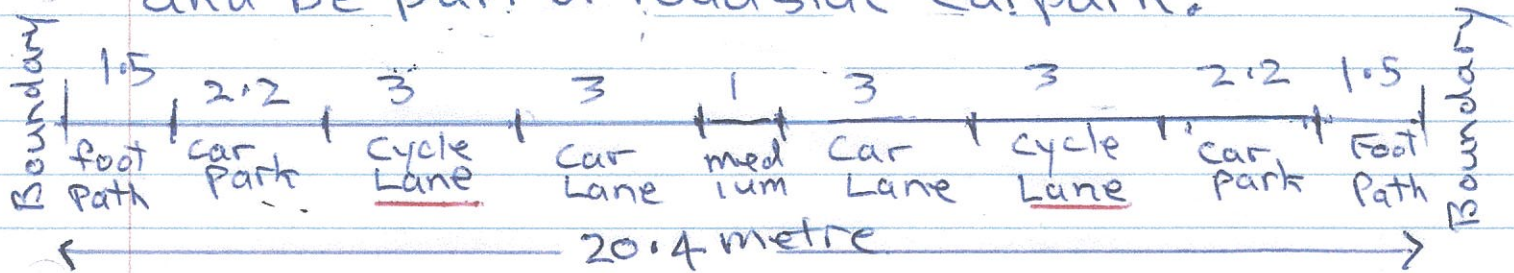 and be part of roadside carpark.
Boundary
1.5 2.2 3 3 1 3 3 2.2 1.5
foot Path
car Park
Cycle Lane
Car Lane
med ium
Car Lane
cycle Lane
car park
Foot Path
Boundary
20.4 metre